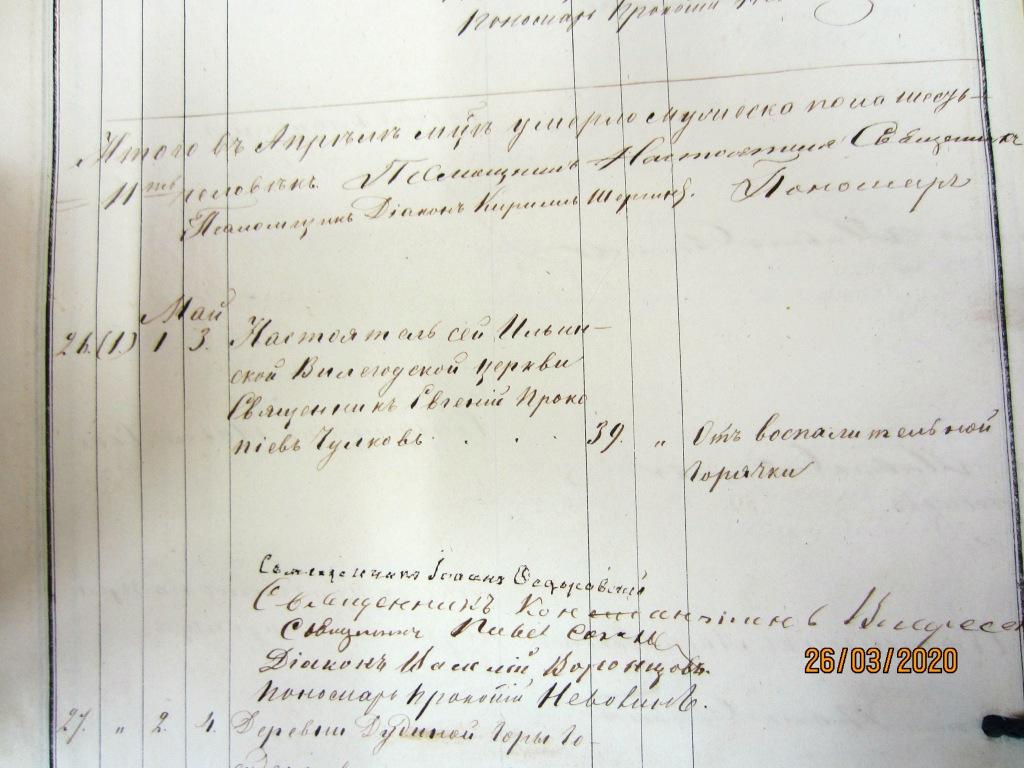 Пономарь Прокопій
Итого въ Апрѣлѣ мцѣ умерло мужеска пола шесть-
11ть человѣкъ. Настоятель Священникъ
Псаломщикъ Діаконъ Кириллъ Шергинъ. Пономарь
Май
26. (1.) 1 3. Настоятель сей Ильин-
ской Вилегодской церкви
Священникъ Евгеній Проко
піевъ Чулковъ . . . 39. „ Отъ воспалительной
горячки
Священникъ Іоаннъ Ѳедоровскій
Священникъ Константинъ
Священникъ Павелъ
Діаконъ Василій Воронцовъ.
Пономарь Прокопій Невокинъ.
27. „ 2. 4. Деревни Дудиной Горы Го-
26/03/2020